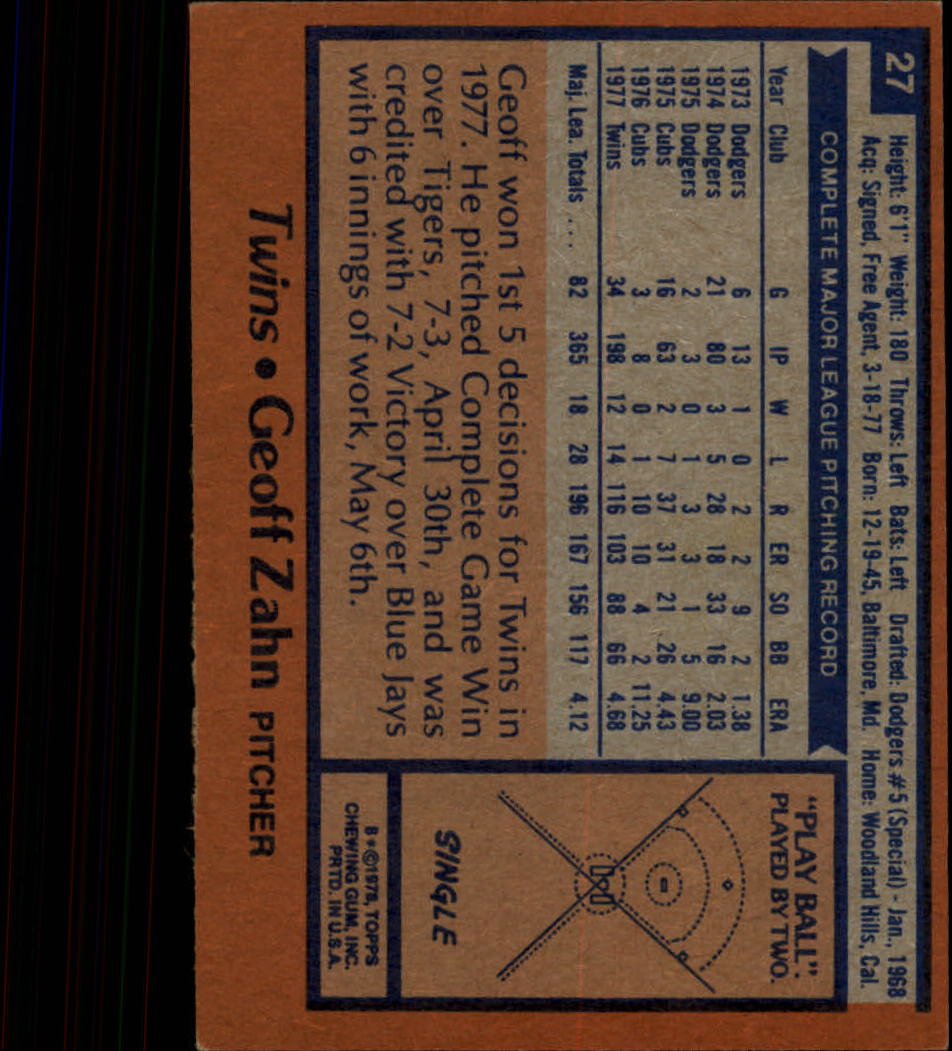 27
Height: 6'1" Weight: 180 Throws: Left Bats: Left Drafted: Dodgers #5 (Special) - Jan., 1968
Acq: Signed, Free Agent, 3-18-77 Born: 12-19-45, Baltimore, Md. Home: Woodland Hills, Cal.
COMPLETE MAJOR LEAGUE PITCHING RECORD
Year Club G IP W L R ER SO BB ERA
1973 Dodgers 6 13 1 0 2 2 9 2 1.38
1974 Dodgers 21 80 3 5 28 18 33 16 2.03
1975 Dodgers 2 3 0 1 3 3 1 5 9.00
1975 Cubs 16 63 2 7 37 31 21 26 4.43
1976 Cubs 3 8 0 1 10 10 4 2 11.25
1977 Twins 34 198 12 14 116 103 88 66 4.68
Maj. Lea. Totals ... 82 365 18 28 196 167 156 117 4.12
Geoff won 1st 5 decisions for Twins in
1977. He pitched Complete Game Win
over Tigers, 7-3, April 30th, and was
credited with 7-2 Victory over Blue Jays
with 6 innings of work, May 6th.
"PLAY BALL":
PLAYED BY TWO.
SINGLE
B*©1978, TOPPS
CHEWING GUM, INC.
PRTD. IN U.S.A.
Twins • Geoff Zahn PITCHER